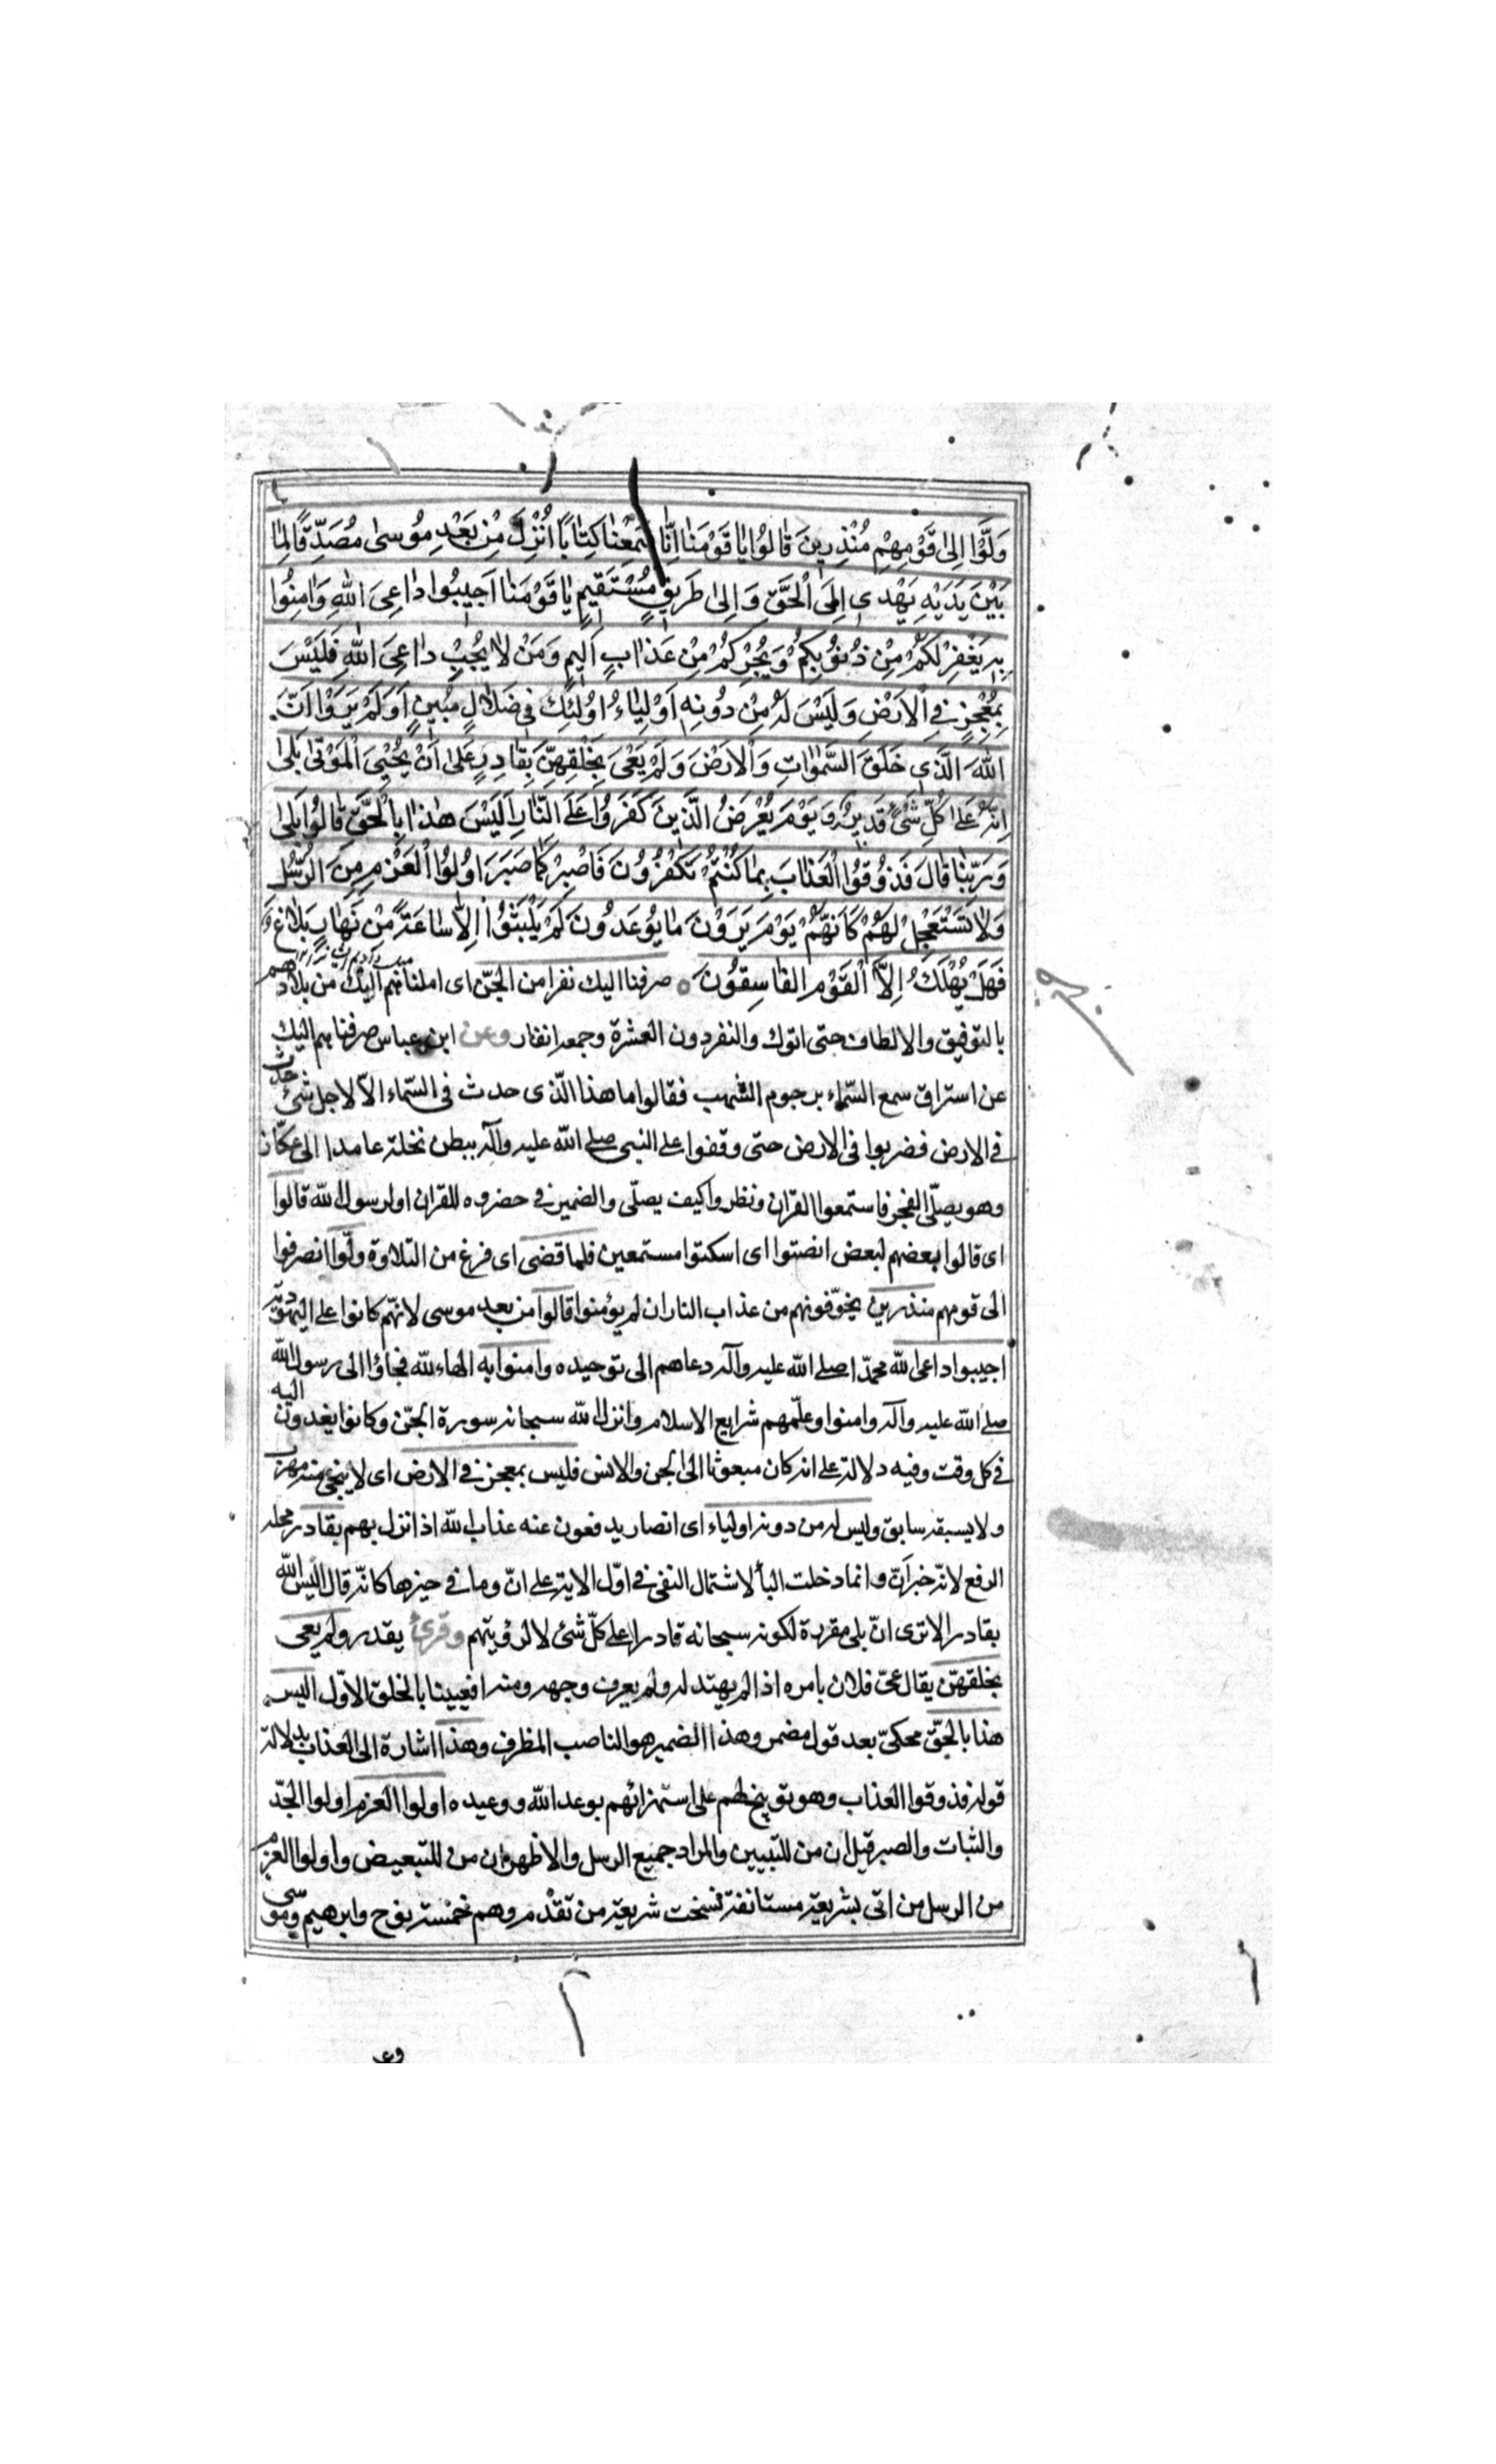 وَلَّوْا اِلىٰ قَوْمِهِمْ مُنْذِرِينَ قٰالُوا يٰا قَوْمَنٰا اِنّٰا سَمِعْنٰا كِتٰابًا اُنْزِلَ مِنْ بَعْدِ مُوسىٰ مُصَدِّقًا لِمٰا
بَيْنَ يَدَيْهِ يَهْدِى اِلَى الْحَقِّ وَاِلىٰ طَرِيقٍ مُسْتَقِيمٍ يٰا قَوْمَنٰا اَجِيبُوا دٰاعِىَ اللهِ وَاٰمِنُوا
بِهِ يَغْفِرْ لَكُمْ مِنْ ذُنُوبِكُمْ وَيُجِرْكُمْ مِنْ عَذٰابٍ اَلِيمٍ وَمَنْ لٰا يُجِبْ دٰاعِىَ اللهِ فَلَيْسَ
بِمُعْجِزٍ فِى الْاَرْضِ وَلَيْسَ لَهُ مِنْ دُونِهِ اَوْلِيٰاءُ اُولٰئِكَ فِى ضَلٰالٍ مُبِينٍ اَوَلَمْ يَرَوْا اَنَّ
اللهَ الَّذِى خَلَقَ السَّمٰوٰاتِ وَالْاَرْضَ وَلَمْ يَعْىَ بِخَلْقِهِنَّ بِقٰادِرٍ عَلىٰ اَنْ يُحْيِىَ الْمَوْتىٰ بَلىٰ
اِنَّهُ عَلىٰ كُلِّ شَىْءٍ قَدِيرٌ وَيَوْمَ يُعْرَضُ الَّذِينَ كَفَرُوا عَلَى النّٰارِ اَلَيْسَ هٰذٰا بِالْحَقِّ قٰالُوا بَلىٰ
وَرَبِّنٰا قٰالَ فَذُوقُوا الْعَذٰابَ بِمٰا كُنْتُمْ تَكْفُرُونَ فَاصْبِرْ كَمٰا صَبَرَ اُولُوا الْعَزْمِ مِنَ الرُّسُلِ
وَلٰا تَسْتَعْجِلْ لَهُمْ كَاَنَّهُمْ يَوْمَ يَرَوْنَ مٰا يُوعَدُونَ لَمْ يَلْبَثُوا اِلّٰا سٰاعَةً مِنْ نَهٰارٍ بَلٰاغٌ
فَهَلْ يُهْلَكُ اِلَّا الْقَوْمُ الْفٰاسِقُونَ ه صرفنا اليك نفرا من الجنّ اى املناهم اليك من بلادهم
بالتوفيق والالطاف حتى اتوك والنفر دون العشرة وجمعه انفار وعن ابن عباس صرفناهم اليك
عن استراق سمع السّماء برجوم الشهب فقالوا ما هذا الّذى حدث فى السّماء الّا لاجل شئ حدث
فى الارض فضربوا فى الارض حتى وقفوا على النبى صلى الله عليه وآله ببطن نخلة عامدا الى عكاظ
وهو يصلّى الفجر فاستمعوا القران ونظروا كيف يصلّى والضمير فى حضروه للقران او لرسول الله قالوا
اى قالوا بعضهم لبعض انصتوا اى اسكتوا مستمعين فلما قضى اى فرغ من التلاوة ولّوا انصرفوا
الى قومهم منذرين يخوّفونهم من عذاب النار ان لم يؤمنوا قالوا من بعد موسى لانّهم كانوا على اليهوديّة
اجيبوا داعى الله محمدّا صلى الله عليه وآله دعاهم الى توحيده وامنوا به الهاء لله فجاؤا الى رسول الله
صلى الله عليه وآله وامنوا وعلّمهم شرايع الاسلام وانزل الله سبحانه سورة الجنّ وكانوا يغدون اليه
فى كل وقت وفيه دلالة على انه كان مبعوثا الى الجن والانس فليس بمعجز فى الارض اى لا ينجى منه مهرب
ولا يسبقه سابق وليس له من دونه اولياء اى انصار يدفعون عنه عذاب الله اذا نزل بهم بقادر محله
الرفع لانّه خبر اَنّ وانما دخلت الباء لاشتمال النفى فى اوّل الاية على انّ وما فى حيزها كانّه قال اليس الله
بقادر الا ترى انّ بلى مقررة لكونه سبحانه قادرا على كلّ شئ لا لرؤيتهم وقرئ يقدر ولم يعى
بخلقهنّ يقال عىّ فلان بامره اذا لم يهتد له ولم يعرف وجهه ومنه افعيينا بالخلق الاوّل اليس
هذا بالحقّ محكىّ بعد قول مضمر وهذا الضمير هو الناصب الظرف وهذا اشارة الى العذاب بدلالة
قوله فذوقوا العذاب وهو توبيخ لهم على استهزائهم بوعد الله ووعيده اولوا العزم اولوا الجدّ
والثبات والصبر قيل ان من للتبيين والمراد جميع الرسل والاظهر ان من للتبعيض واولوا العزم
من الرسل من اتى بشريعة مستانفة نسخت شريعة من تقدّم وهم خمسة نوح وابرهيم وموسى